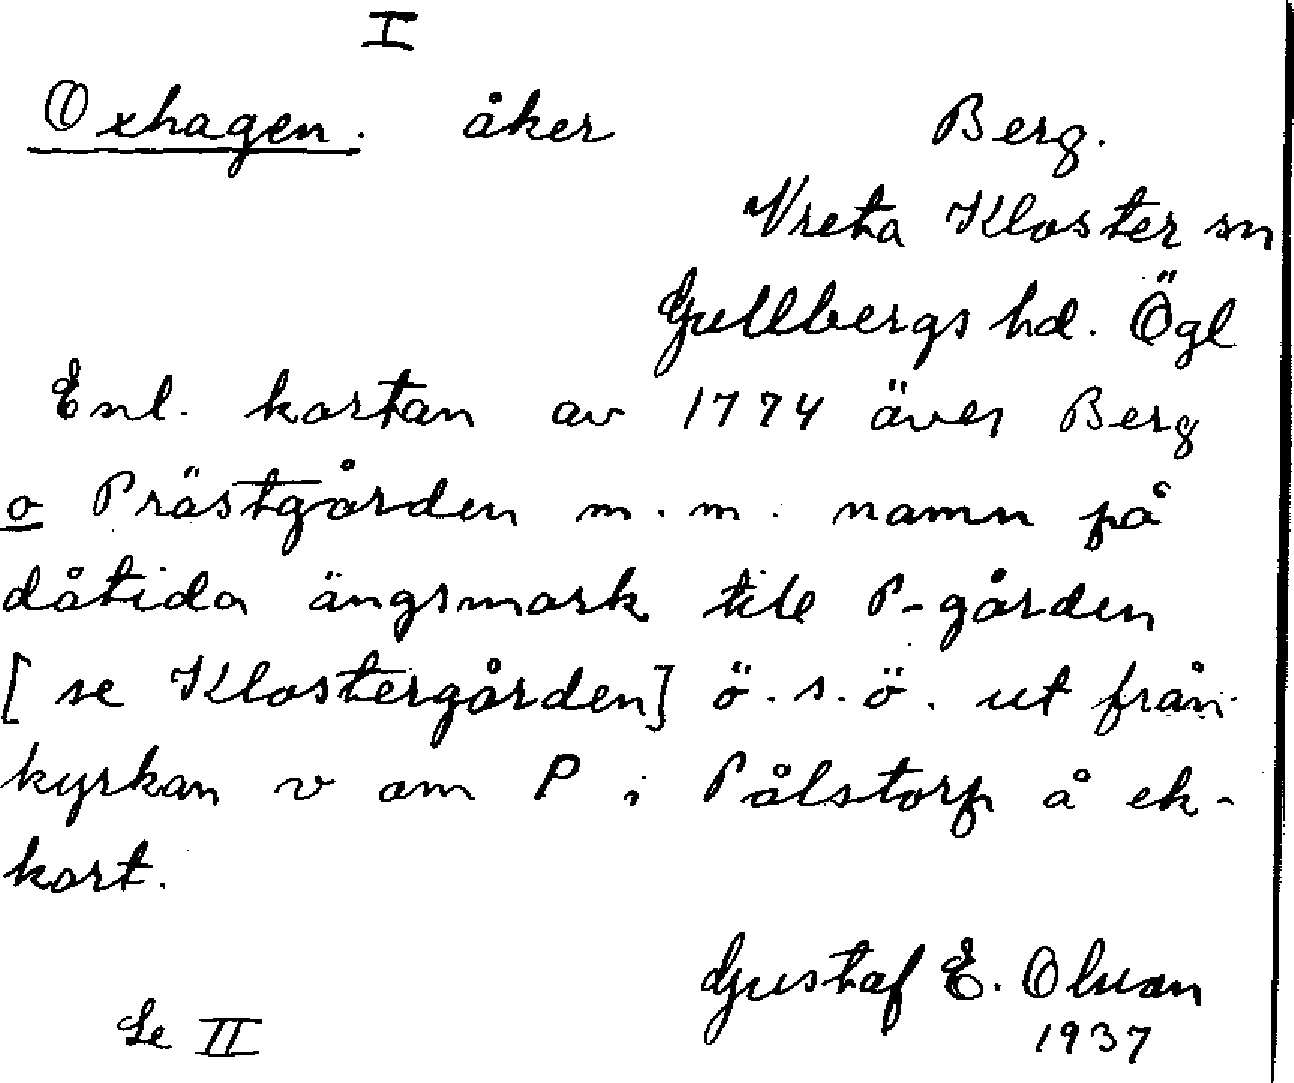 I
Oxhagen. åker Berg.
Vreta Kloster sn
Gullbergs hd. Ögl
Enl. kartan av 1774 över Berg
o Prästgården m.m. namn på
dåtida ängsmark till P-gården
[se Klostergården] ö.s.ö. ut från
kyrkan v om P i Pålstorp å ek-
kart.
Gustaf E. Olsson
1937
Se II